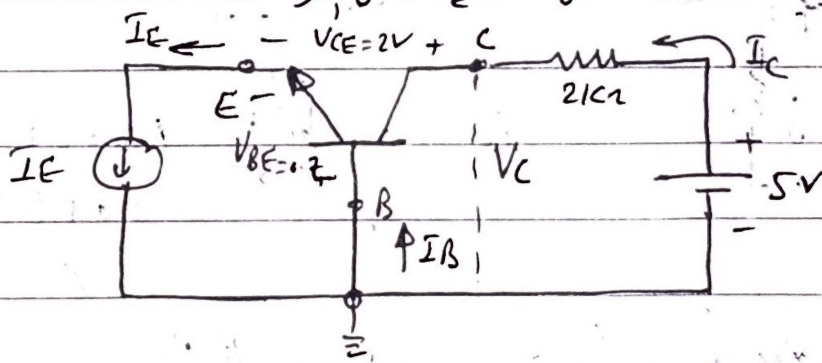 IE ← − VCE=2V + C IC
E − 2KΩ
IE VBE=.7 VC + 5V
B −
↑ IB